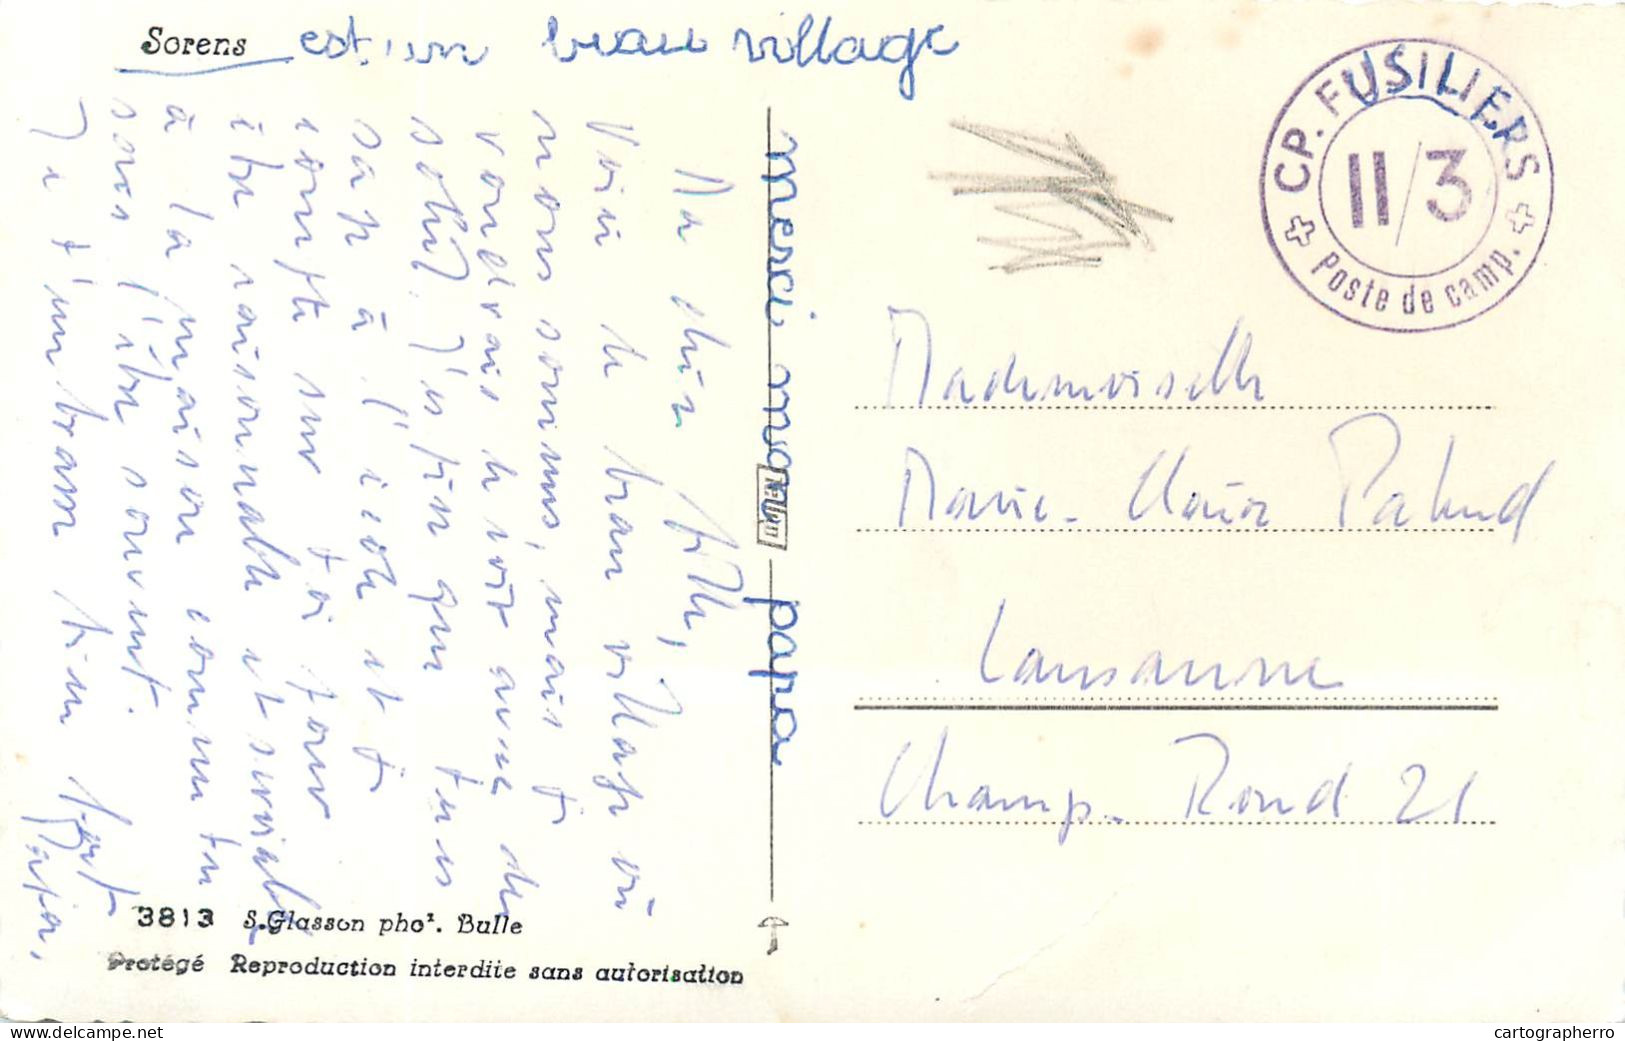 Sorens est un beau village
Ma chère fille,
Voici le beau village où
nous sommes, mais je
voudrais le voir avec du
soleil. J'espère que tu es
sage à l'école et
compte sur toi pour
être raisonnable et serviable
à la maison comme tu
sais l'être souvent.
Je t'embrasse bien fort
Papa.
merci mon papa
CP. FUSILIERS
II/3
Poste de camp.
Mademoiselle
Marie-Claire Pahud
Lausanne
Champ-Rond 21
3813 S. Glasson phot. Bulle
Protégé Reproduction interdite sans autorisation
cartographerro